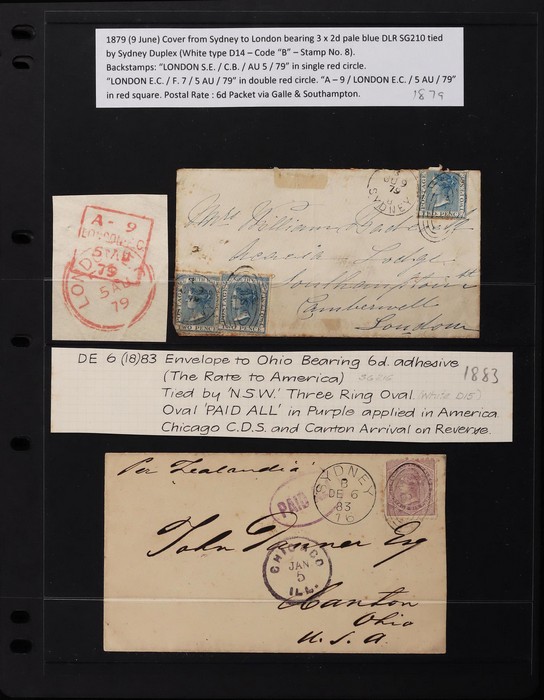 1879 (9 June) Cover from Sydney to London bearing 3 x 2d pale blue DLR SG210 tied
by Sydney Duplex (White type D14 – Code "B" – Stamp No. 8).
Backstamps: "LONDON S.E. / C.B. / AU 5 / 79" in single red circle.
"LONDON E.C. / F. 7 / 5 AU / 79" in double red circle. "A – 9 / LONDON E.C. / 5 AU / 79"
in red square. Postal Rate : 6d Packet via Galle & Southampton.
1879
SYDNEY
79
POSTAGE
TWO PENCE
Mrs William
Acacia Lodge
Southampton St
Camberwell
London
A - 9
LONDON E.C.
5 AU
79
5 AU
79
POSTAGE
TWO PENCE
POSTAGE
TWO PENCE
DE 6 (18)83 Envelope to Ohio Bearing 6d. adhesive
(The Rate to America) SG236
Tied by 'N.S.W.' Three Ring Oval. (White D15)
Oval 'PAID ALL' in Purple applied in America.
Chicago C.D.S. and Canton Arrival on Reverse.
1883
Per Zealandia
PAID
SYDNEY
B
DE 6
83
76
John Danner Esq
CHICAGO
JAN
5
ILL.
Canton
Ohio
U.S.A.